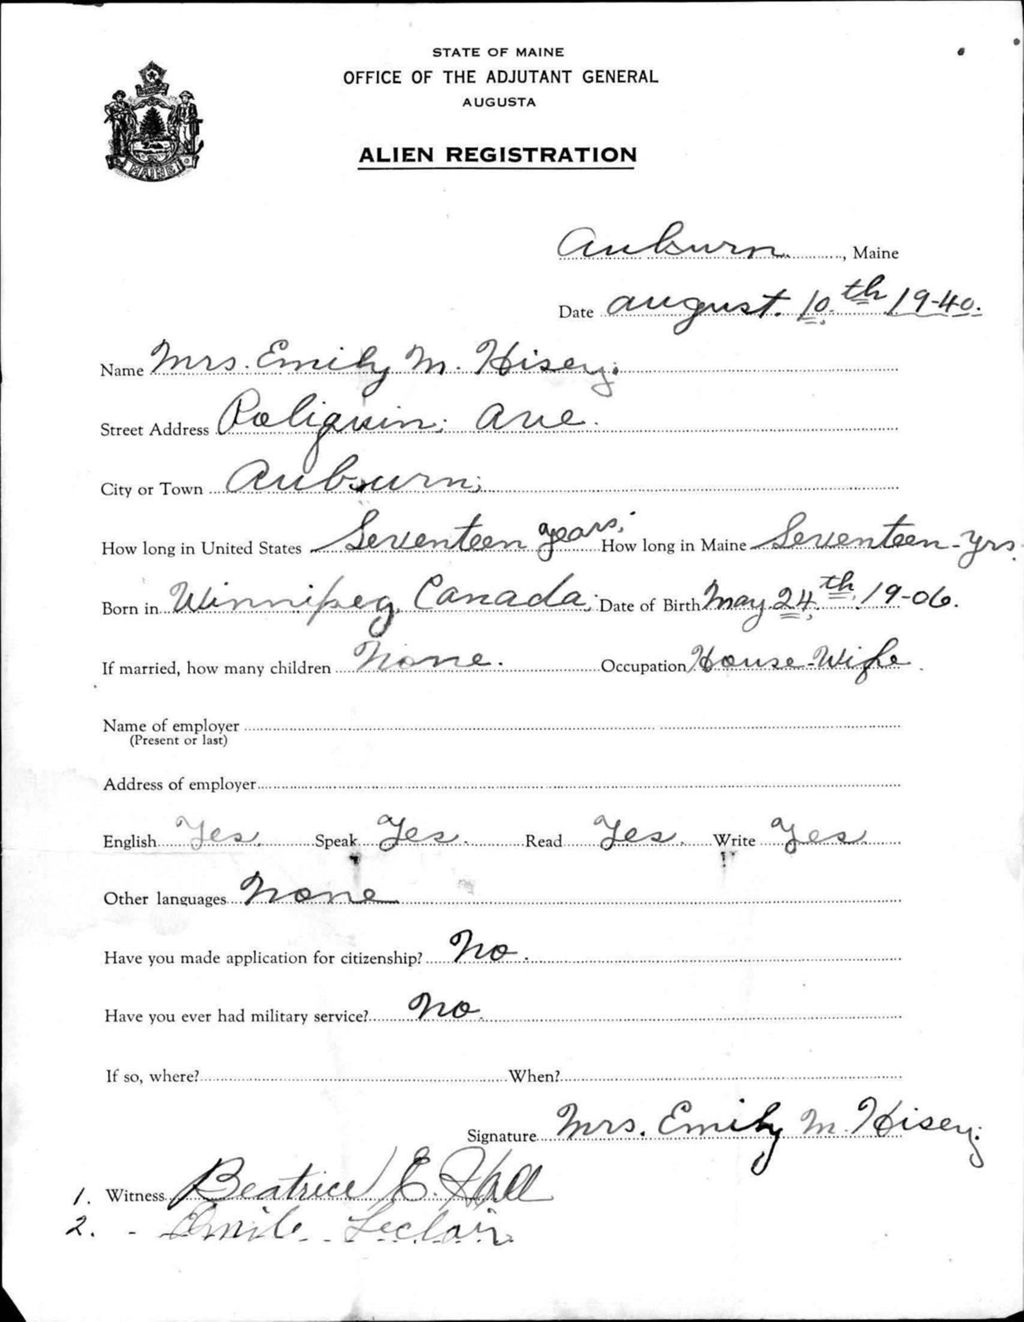 STATE OF MAINE
OFFICE OF THE ADJUTANT GENERAL
AUGUSTA
ALIEN REGISTRATION
MAINE
Auburn, Maine
Date August. 10.th 19-40.
Name Mrs. Emily M. Hisey.
Street Address Poliquin; Ave.
City or Town Auburn;
How long in United States Seventeen years; How long in Maine Seventeen-Yrs.
Born in Winnipeg, Canada; Date of Birth May 24th. 19-06.
If married, how many children None. Occupation House-Wife.
Name of employer
(Present or last)
Address of employer
English Yes. Speak Yes. Read Yes. Write Yes.
Other languages None
Have you made application for citizenship? No.
Have you ever had military service? No.
If so, where? When?
Signature Mrs. Emily M. Hisey.
1. Witness Beatrice E. Hall
2. - Emile Leclair